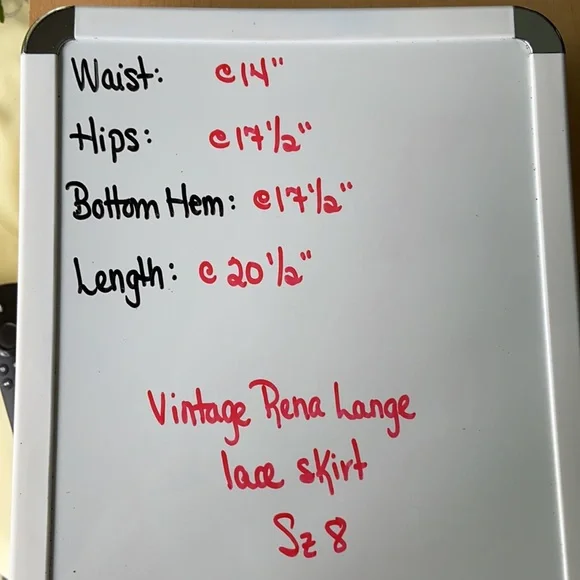 Waist: c 14"
Hips: c 17 1/2"
Bottom Hem: c 17 1/2"
Length: c 20 1/2"
Vintage Rena Lange
lace skirt
Sz 8